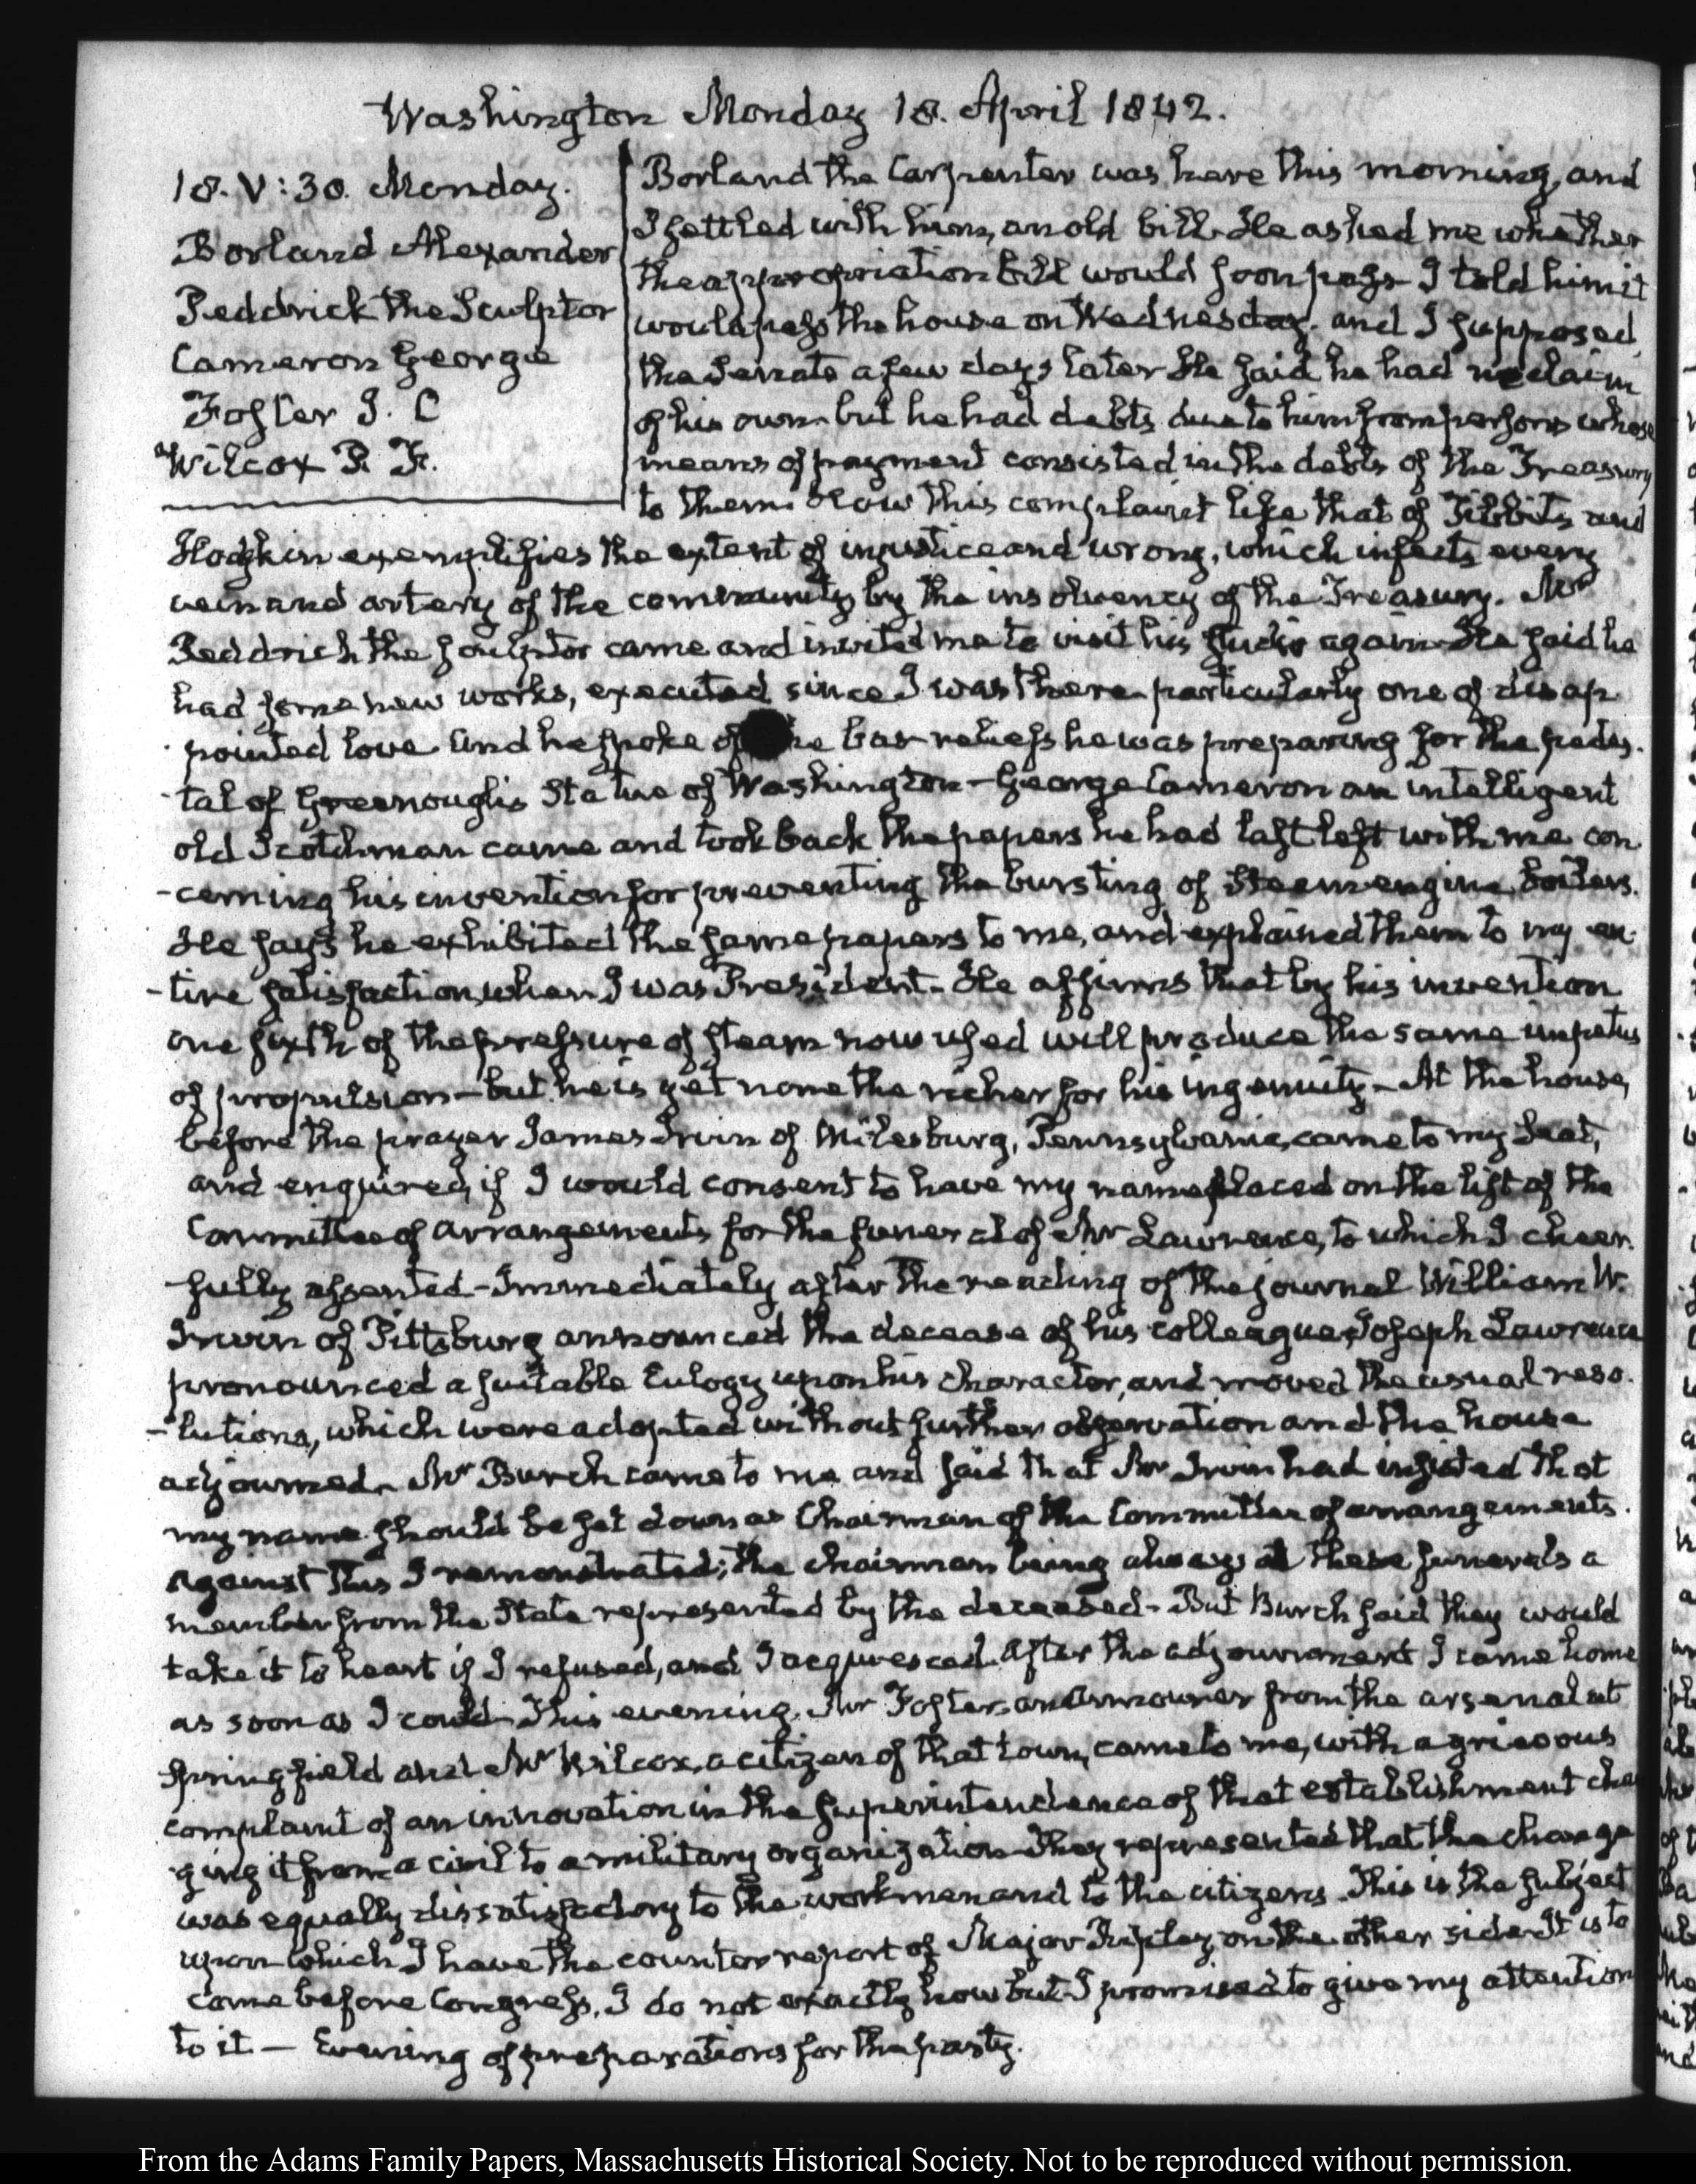 Washington Monday 18. April 1842.
18. V:30. Monday.
Borland Alexander
Peddrick the Sculptor
Cameron George
Foster J. C
Wilcox P. F.
Borland the Carpenter was here this morning, and
I settled with him, an old bill. He asked me whether
the appropriation bill would soon pass. I told him it
would pass the house on Wednesday. and I supposed
the Senate a few days later He said he had no claim
of his own but he had debts due to him from persons whose
means of payment consisted in the debts of the Treasury
to them. Now this complaint like that of Tibbits and
Hodgkin exemplifies the extent of injustice and wrong, which infects every
vein and artery of the community by the insolvency of the Treasury. Mr
Peddrick the sculptor came and invited me to visit his studio again. He said he
had some new works, executed since I was there particularly one of disap
pointed love and he spoke of the bas reliefs he was preparing for the pedes.
-tal of Greenough's Statue of Washington — George Cameron an intelligent
old Scotchman came and took back the papers he had last left with me con
-cerning his invention for preventing the bursting of Steam engine boilers.
He says he exhibited the same papers to me, and explained them to my en-
-tire satisfaction, when I was President. He affirms that by his invention
one sixth of the pressure of steam now used will produce the same impetus
of propulsion — but he is yet none the richer for his ingenuity — At the house,
before the prayer James Irvin of Milesburg, Pennsylvania, came to my seat,
and enquired, if I would consent to have my name placed on the list of the
Committee of arrangements for the funeral of Mr Lawrence, to which I cheer.
-fully assented — Immediately after the reading of the journal William W.
Irwin of Pittsburg announced the decease of his colleague, Joseph Lawrence
pronounced a suitable Eulogy upon his character, and moved the usual reso.
-lutions, which were adopted without further observation and the house
adjourned. Mr Burch came to me and said that Mr Irvin had insisted that
my name should be set down as Chairman of the Committee of arrangements.
Against this I remonstrated; the chairman being always at these funerals a
member from the State represented by the deceased — But Burch said they would
take it to heart if I refused, and I acquiesced. After the adjournment I came home
as soon as I could. This evening, Mr Foster, an Armourer from the arsenal at
Springfield and Mr Wilcox, a citizen of that town, came to me, with a grievous
complaint of an innovation in the Superintendence of that establishment chan
ging it from a civil to a military organization. They represented that the change
was equally dissatisfactory to the workmen and to the citizens. This is the subject
upon which I have the counter report of Major Ripley, on the other side. It is to
come before Congress, I do not exactly how but I promised to give my attention
to it — Evening of preparations for the party.
From the Adams Family Papers, Massachusetts Historical Society. Not to be reproduced without permission.